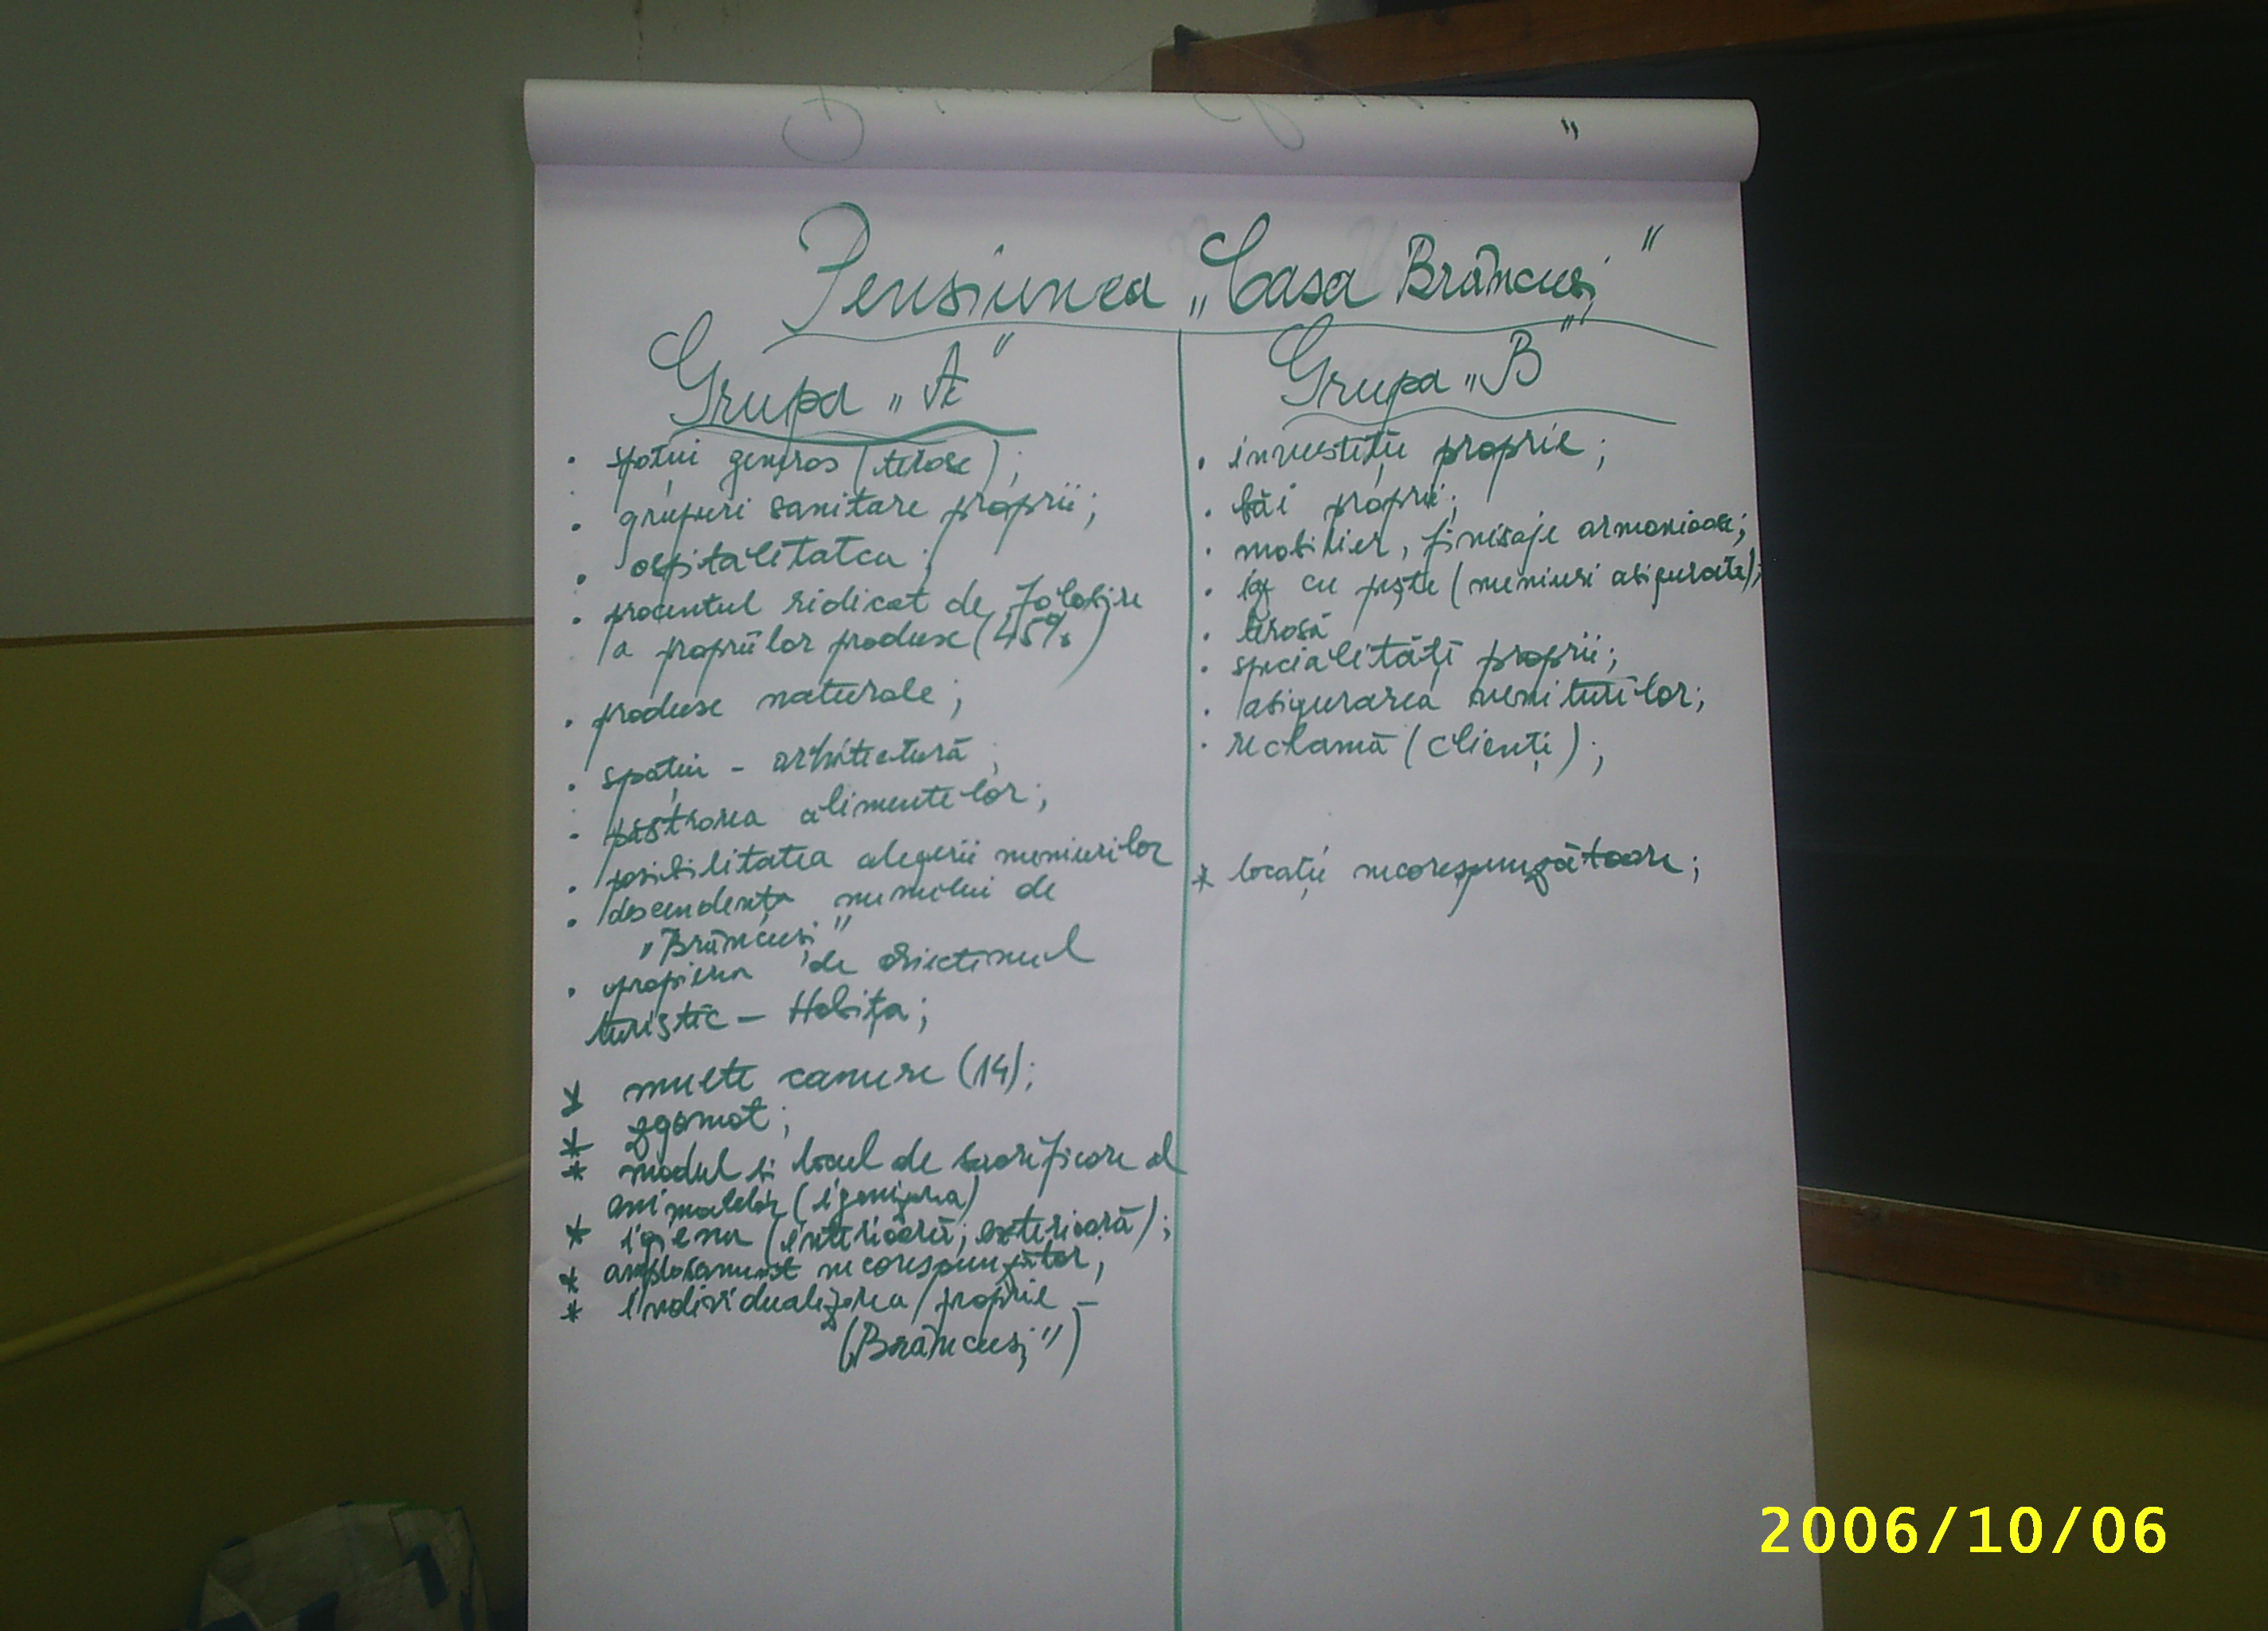 Pensiunea „Casa Brâncuși”
Grupa „A”
• spațiu generos (terase);
• grupuri sanitare proprii;
• ospitalitatea;
• procentul ridicat de folosire
a propriilor produse (45%)
• produse naturale;
• spațiu - arhitectură;
• păstrarea alimentelor;
• posibilitatea alegerii meniurilor
• descendența numelui de
„Brâncuși”
• apropierea de obiectivul
turistic – Hobița;
* multe camere (14);
* zgomot;
* modul și locul de sacrificare al
animalelor (igenizarea)
* igiena (interioară; exterioară);
* amplasament necorespunzător,
* individualizarea / proprie –
(„Brâncuși”)
Grupa „B”
• investiție proprie;
• băi proprii;
• mobilier, finisaje armonioase;
• cu pește (meniuri asigurate);
• terasă
• specialități proprii;
• asigurarea veniturilor;
• reclamă (clienți);
* locații necorespunzătoare;
2006/10/06